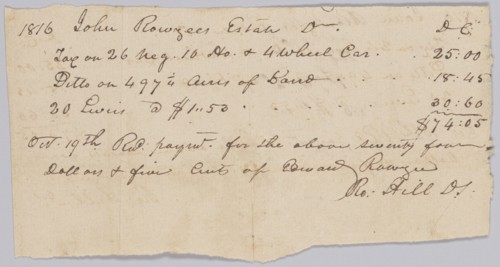 1816 John Rowzees Estate Dr. D C
Tax on 26 Neg. 10 Ho. & 4 Wheel Car. . 25:00
Ditto on 497 Acres of Land . . 18:45
20 Levies @ $1.53 . . . . 30:60
$74:05
Oct. 19th Recd. paymt. for the above seventy four
dollars & five Cents of Edward Rowzee
Ro: Hill DS.